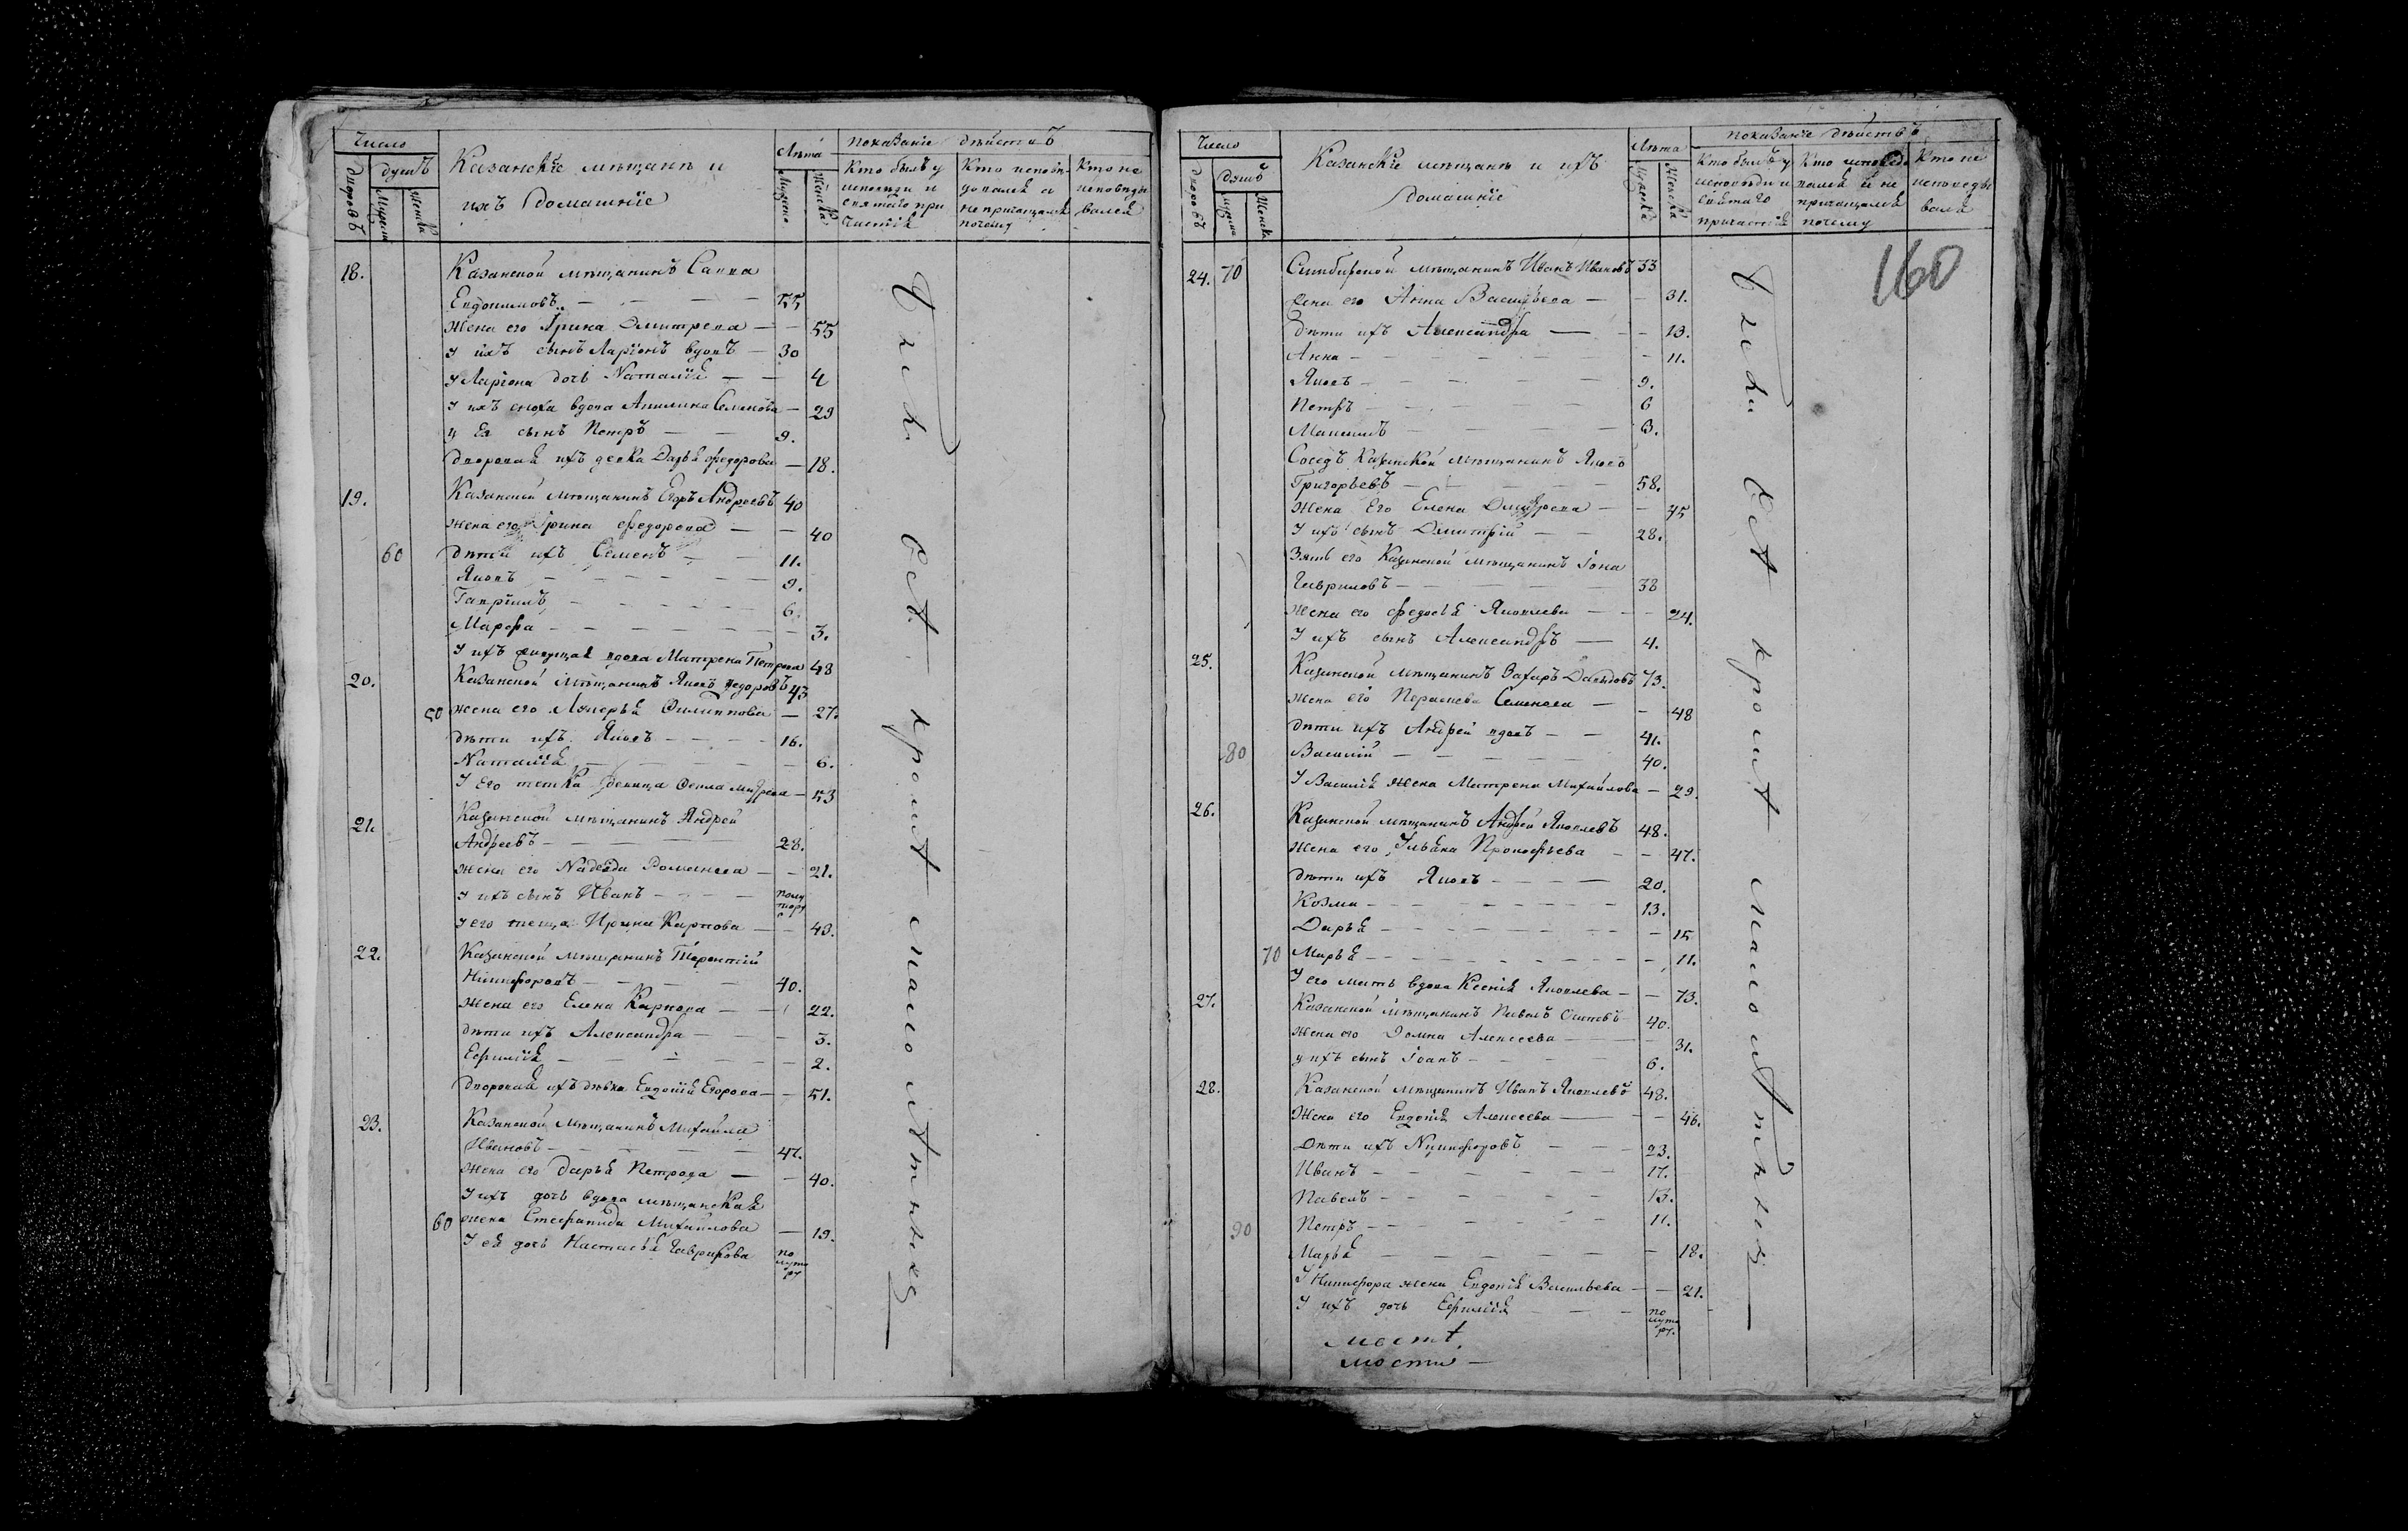 Число
душъ
дворовъ
Мужеска
Женска
Казанскiе мѣщанѣ и
ихъ домашнiе
Лѣта
Мужеска
Женска
показанiе дѣйствъ
Кто былъ у
исповѣди и
святаго при
частiя
Кто исповѣ-
довался а
не причащался
почему
Кто не
исповѣды
вался
18. Казанской мѣщанинъ Савва
Евдокимовъ — — — 55
жена его Iрина Дмитрева — — 55
У ихъ сынъ Ларiонъ вдовъ — 30
У Ларiона дочь Наталiя — — 4
У ихъ сноха вдова Акилина Семенова — 29
у Ея сынъ Петръ — — 9.
дворовая ихъ девка Дарья Федорова — 18.
19. Казанской мѣщанинъ Егоръ Андреевъ 40
жена его Iрина Федорова — — 40
60 дѣти ихъ Семенъ — — 11.
Яковъ — — — — — 9.
Гаврiилъ — — — — — 6.
Марфа — — — — — — 3.
У ихъ живущая вдова Матрена Петрова 48
20. Казанской мѣщанинъ Яковъ Федоровъ 43
50 жена его Лукерья Филиппова — 27.
дѣти ихъ Яковъ — — — 16.
Наталiя — — — — 6.
У Его тетка девица Фекла — 53
21. Казанской мѣщанинъ Андрей
Андреевъ — — — — 28.
жена его Надежда Романова — — 21.
У ихъ сынъ Иванъ — — — полу
тора
У его теща Ирина Карпова — — 43.
22. Казанской мѣщанинъ Терентiй
Никифоровъ — — — 40.
жена его Елена Карпова — — 22.
дѣти ихъ Александра — — — 3.
Ефимiя — — — — — 2.
дворовая ихъ дѣвка Евдокiя Егорова — — 51.
23. Казанской мѣщанинъ Михайла
Ивановъ — — — — — 47.
жена его Дарья Петрова — — 40.
У ихъ дочь вдова мѣщанская
60 жена Стефанида Михайлова — 19.
У ея дочь Настасья Гаврилова по
луто
ра
всѣ кромѣ малолѣтныхъ
Число
душъ
дворовъ
Мужеска
Женска
Казанскiе мѣщанѣ и ихъ
домашнiе
Лѣта
Мужеска
Женска
показанiе дѣйствъ
Кто былъ у
исповѣди и
святаго
причастiя
Кто исповедо
вался и не
причащался
почему
Кто не
исповеды
вался
160
24. 70 Симбирской мѣщанинъ Иванъ Ивановъ 33
жена его Анна Васильева — — 31.
дѣти ихъ Александра — — 13.
Анна — — — — — 11.
Яковъ — — — — 9.
Петръ — — — — 6
Максимъ — — — — 3.
Соседъ Казанской мѣщанинъ Яковъ
Григорьевъ — — — — 58.
жена Его Елена Дмитрева — — 45
У ихъ сынъ Дмитрiй — — 28.
Зять его Казанской мѣщанинъ Iона
Гавриловъ — — — — 38
жена его Федосья Яковлева — — — 24.
У ихъ сынъ Александръ — 4.
25. Казанской мѣщанинъ Захаръ Давыдовъ 73.
жена его Парасковья Семенова — — 48
дѣти ихъ Андрей вдовъ — — 41.
80 Василiй — — — — 40.
У Василiя жена Матрена Михайлова — 29.
26. Казанской мѣщанинъ Андрей Яковлевъ 48.
жена его Ульяна Прокофьева — — 47.
дѣти ихъ Яковъ — — — — 20.
Козма — — — — — — 13.
Дарья — — — — — — 15
70 Марья — — — — — — 11.
У его мать вдова Ксенiя Яковлева — — 73.
27. Казанской мѣщанинъ Павелъ Осиповъ 40.
жена его Домна Алексеева — — 31.
у ихъ сынъ Iоанъ — — — 6.
28. Казанской мѣщанинъ Иванъ Яковлевъ 48.
Жена его Евдокiя Алексеева — — — 46.
Дѣти ихъ Никифоровъ — — 23.
Иванъ — — — — — 17.
Павелъ — — — — — 13.
90 Петръ — — — — — 11.
Марья — — — — — — 18.
У Никифора жена Евдокiя Васильева — — 21.
У ихъ дочь Ефимiя — — — по
луто
ра.
всѣ кромѣ малолѣтныхъ